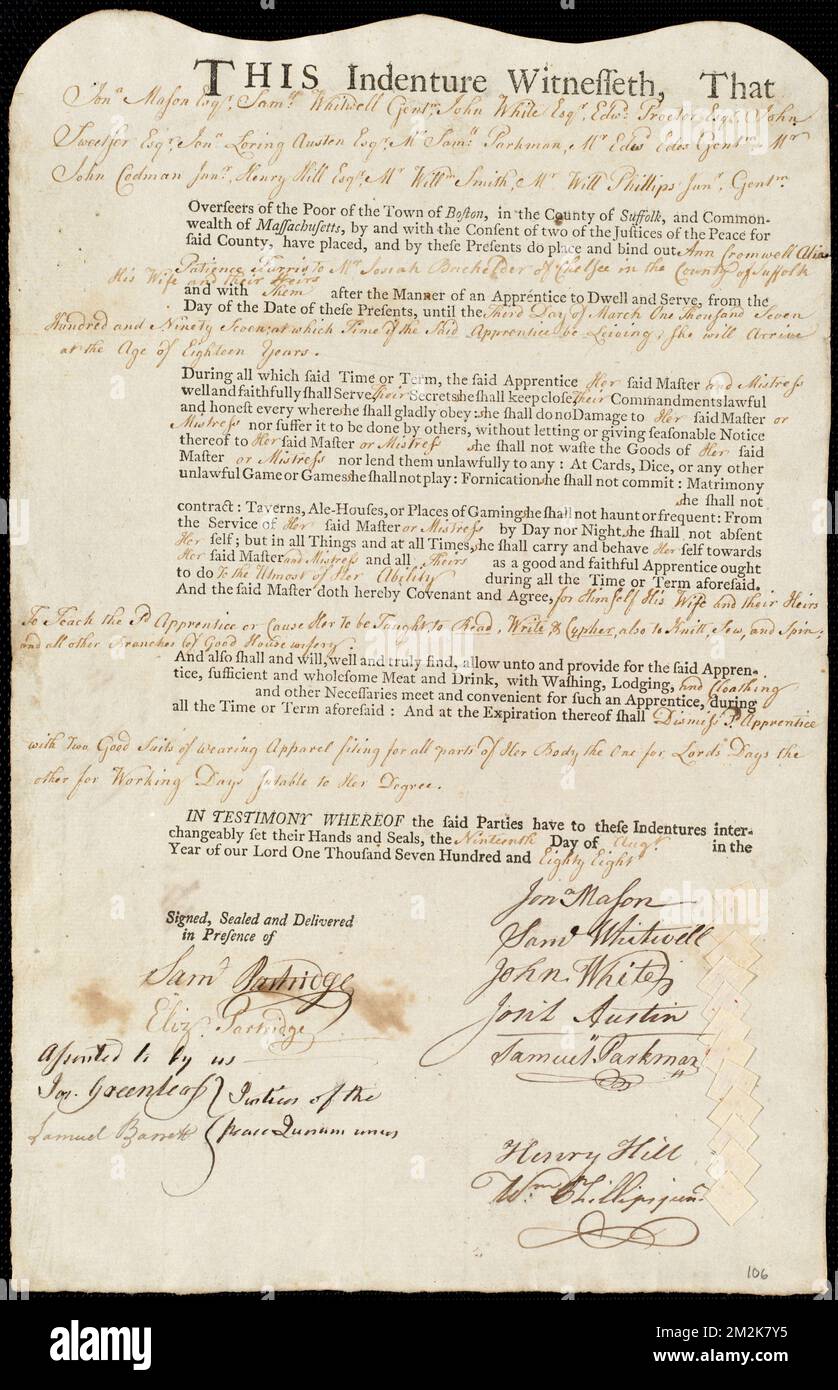 THIS Indenture Witnesseth, That
Jonª Mason Esqr, Samll Whitwell Gentm, John White Esqr, Edwd Proctor Esqr, John
Sweetser Esqr, Jonª Loring Austen Esqr, Mr Samll Parkman, Mr Edwd Edes Gentm, Mr
John Codman Junr, Henry Hill Esqr, Mr Willm Smith, Mr Will Phillips Junr, Gentm
Overseers of the Poor of the Town of Boston, in the County of Suffolk, and Common-
wealth of Massachusetts, by and with the Consent of two of the Justices of the Peace for
said County, have placed, and by these Presents do place and bind out Ann Cromwell Alias
Patience Furris to Mr Josiah Bachelder of Chelsee in the County of Suffolk
His Wife and their Heirs
and with Them after the Manner of an Apprentice to Dwell and Serve, from the
Day of the Date of these Presents, until the Third Day of March One Thousand Seven
Hundred and Ninety Seven, at which Time if the Said Apprentice be Leiving, She will Arrive
at the Age of Eighteen Years.
During all which said Time or Term, the said Apprentice Her said Master and Mistress
well and faithfully shall Serve, Their Secrets she shall keep close Their Commandments lawful
and honest every where she shall gladly obey: she shall do no Damage to Her said Master or
Mistress nor suffer it to be done by others, without letting or giving seasonable Notice
thereof to Her said Master or Mistress she shall not waste the Goods of Her said
Master or Mistress nor lend them unlawfully to any: At Cards, Dice, or any other
unlawful Game or Games she shall not play: Fornication she shall not commit: Matrimony
she shall not
contract: Taverns, Ale-Houses, or Places of Gaming she shall not haunt or frequent: From
the Service of Her said Master or Mistress by Day nor Night she shall not absent
Her self; but in all Things and at all Times, she shall carry and behave Her self towards
Her said Master and Mistress and all Theirs as a good and faithful Apprentice ought
to do to the Utmost of Her Ability during all the Time or Term aforesaid.
And the said Master doth hereby Covenant and Agree, for Himself His Wife and their Heirs
To Teach the Sd Apprentice or Cause Her to be Taught to Read, Write, & Cypher, also to Knitt, Sew, and Spin,
and all other Branches of Good Housewifery.
And also shall and will, well and truly find, allow unto and provide for the said Appren-
tice, sufficient and wholesome Meat and Drink, with Washing, Lodging, and Cloathing
and other Necessaries meet and convenient for such an Apprentice, during
all the Time or Term aforesaid: And at the Expiration thereof shall Dismiss Sd Apprentice
with two Good Suits of wearing Apparel fiting for all parts of Her Body the One for Lords Days the
other for Working Days sutable to Her Degree.
IN TESTIMONY WHEREOF the said Parties have to these Indentures inter-
changeably set their Hands and Seals, the Ninteenth Day of Augt in the
Year of our Lord One Thousand Seven Hundred and Eighty Eight
Signed, Sealed and Delivered
in Presence of
Saml Partridge
Eliz. Partridge
Assented to by us
Jos. Greenleaf } Justices of the
Samuel Barrett } Peace Quorum unus
Jonª Mason
Saml Whitwell
John White
Austin
Samuel Parkman
Henry Hill
Wm Phillips junr
106
alamy
Image ID: 2M2K7Y5
www.alamy.com